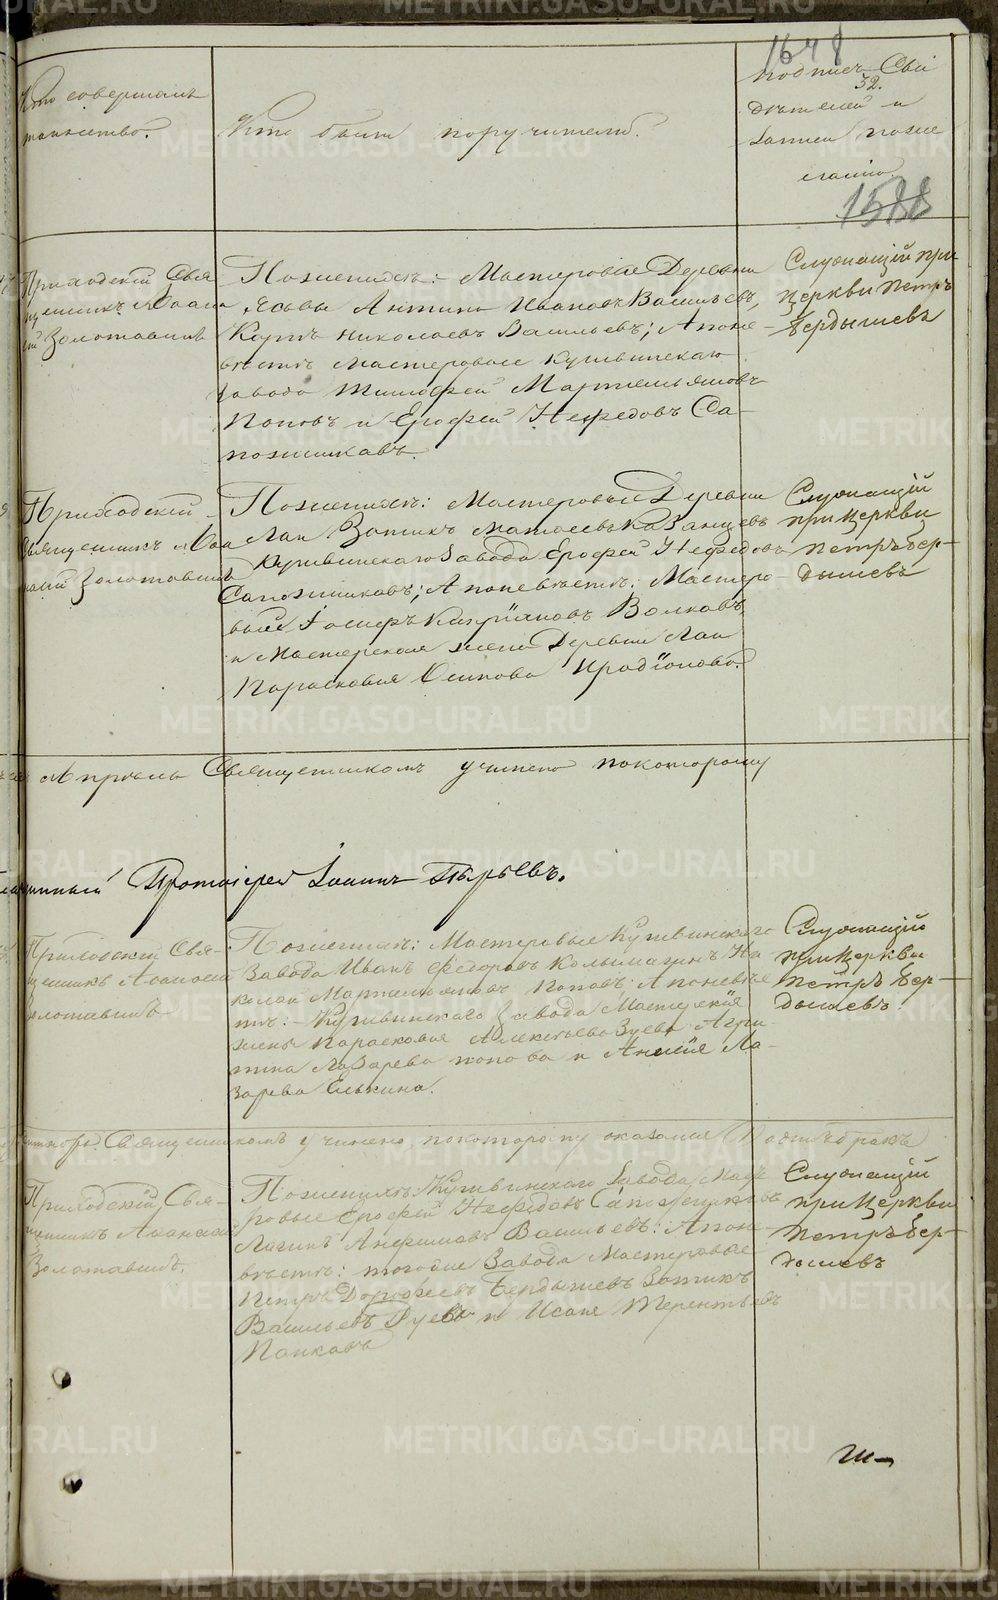 1648
1588
Кто совершалъ
таинство.
Кто были поручители.
Подпись Сви
52.
дѣтелей и
записи поже
ланію
Приходскій Свя
щенникъ Афана
сій Золотавинъ
По женихѣ: Мастеровые Деревни
Ясьвы Антипъ Ивановъ Васильевъ,
Карпъ Николаевъ Васильевъ; А поне-
вѣстѣ Мастеровые Кушвинскаго
завода Тимофей Мартемьяновъ
Поповъ и Ерофей Нефедовъ Са-
пожниковъ.
Служащій при
Церкви Петръ
Бердышевъ
Приходскій
Священникъ Афа
насій Золотавинъ
По женихѣ: Мастеровые Деревни
Лаи Зотикъ Матфеевъ Казанцевъ
Кушвинскаго Завода Ерофей Нефедовъ
Сапожниковъ; А поневѣстѣ: Мастеро-
вый Іосифъ Кипріановъ Волковъ
и Мастерская жена Деревни Лаи
Парасковия Осипова Иродіонова.
Служащій
при Церкви
Петръ Бер-
дышевъ
Апрѣль Священникомъ учинено покоторому
Протоіерей Іоаннъ Пырьевъ.
Приходскій Свя-
щенникъ Афанасій
Золотавинъ
По женихѣ: Мастеровые Кушвинскаго
Завода Иванъ Федоровъ Колымагинъ Ни
колай Мартемьяновъ Поповъ; А поневѣс
тѣ: Кушвинскаго завода Мастерскія
жены Парасковия Алексѣева Зуева Агри-
пина Лазарева Попова и Анисія Ла-
зарева Елькина.
Служащій
при Церкви
Петръ Бер-
дышевъ
Священникомъ учинено покоторому оказалися
Приходскій Свя-
щенникъ Афанасій
Золотавинъ.
По женихѣ: Кушвинскаго Завода Масте
ровые Ерофей Нефедовъ Сапожниковъ
Логинъ Анфимовъ Васильевъ: А поне-
вѣстѣ: тогоже Завода Мастеровые
Петръ Дорофеевъ Бердышевъ Зотикъ
Васильевъ Зуевъ и Исаія Терентьевъ
Панковъ
Служащій
при Церкви
Петръ Бер-
дышевъ
METRIKI.GASO-URAL.RU